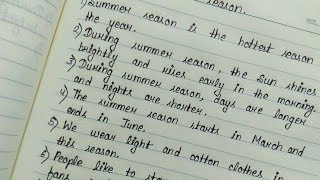 season.
1) Summer season is the hottest season
the year.
2) During summer season, the Sun shines
brightly and rises early in the morning.
3) During summer season, days are longer
and nights are shorter.
4) The summer season starts in March and
ends in June.
5) We wear light and cotton clothes in
this season.
6) People like to
fans